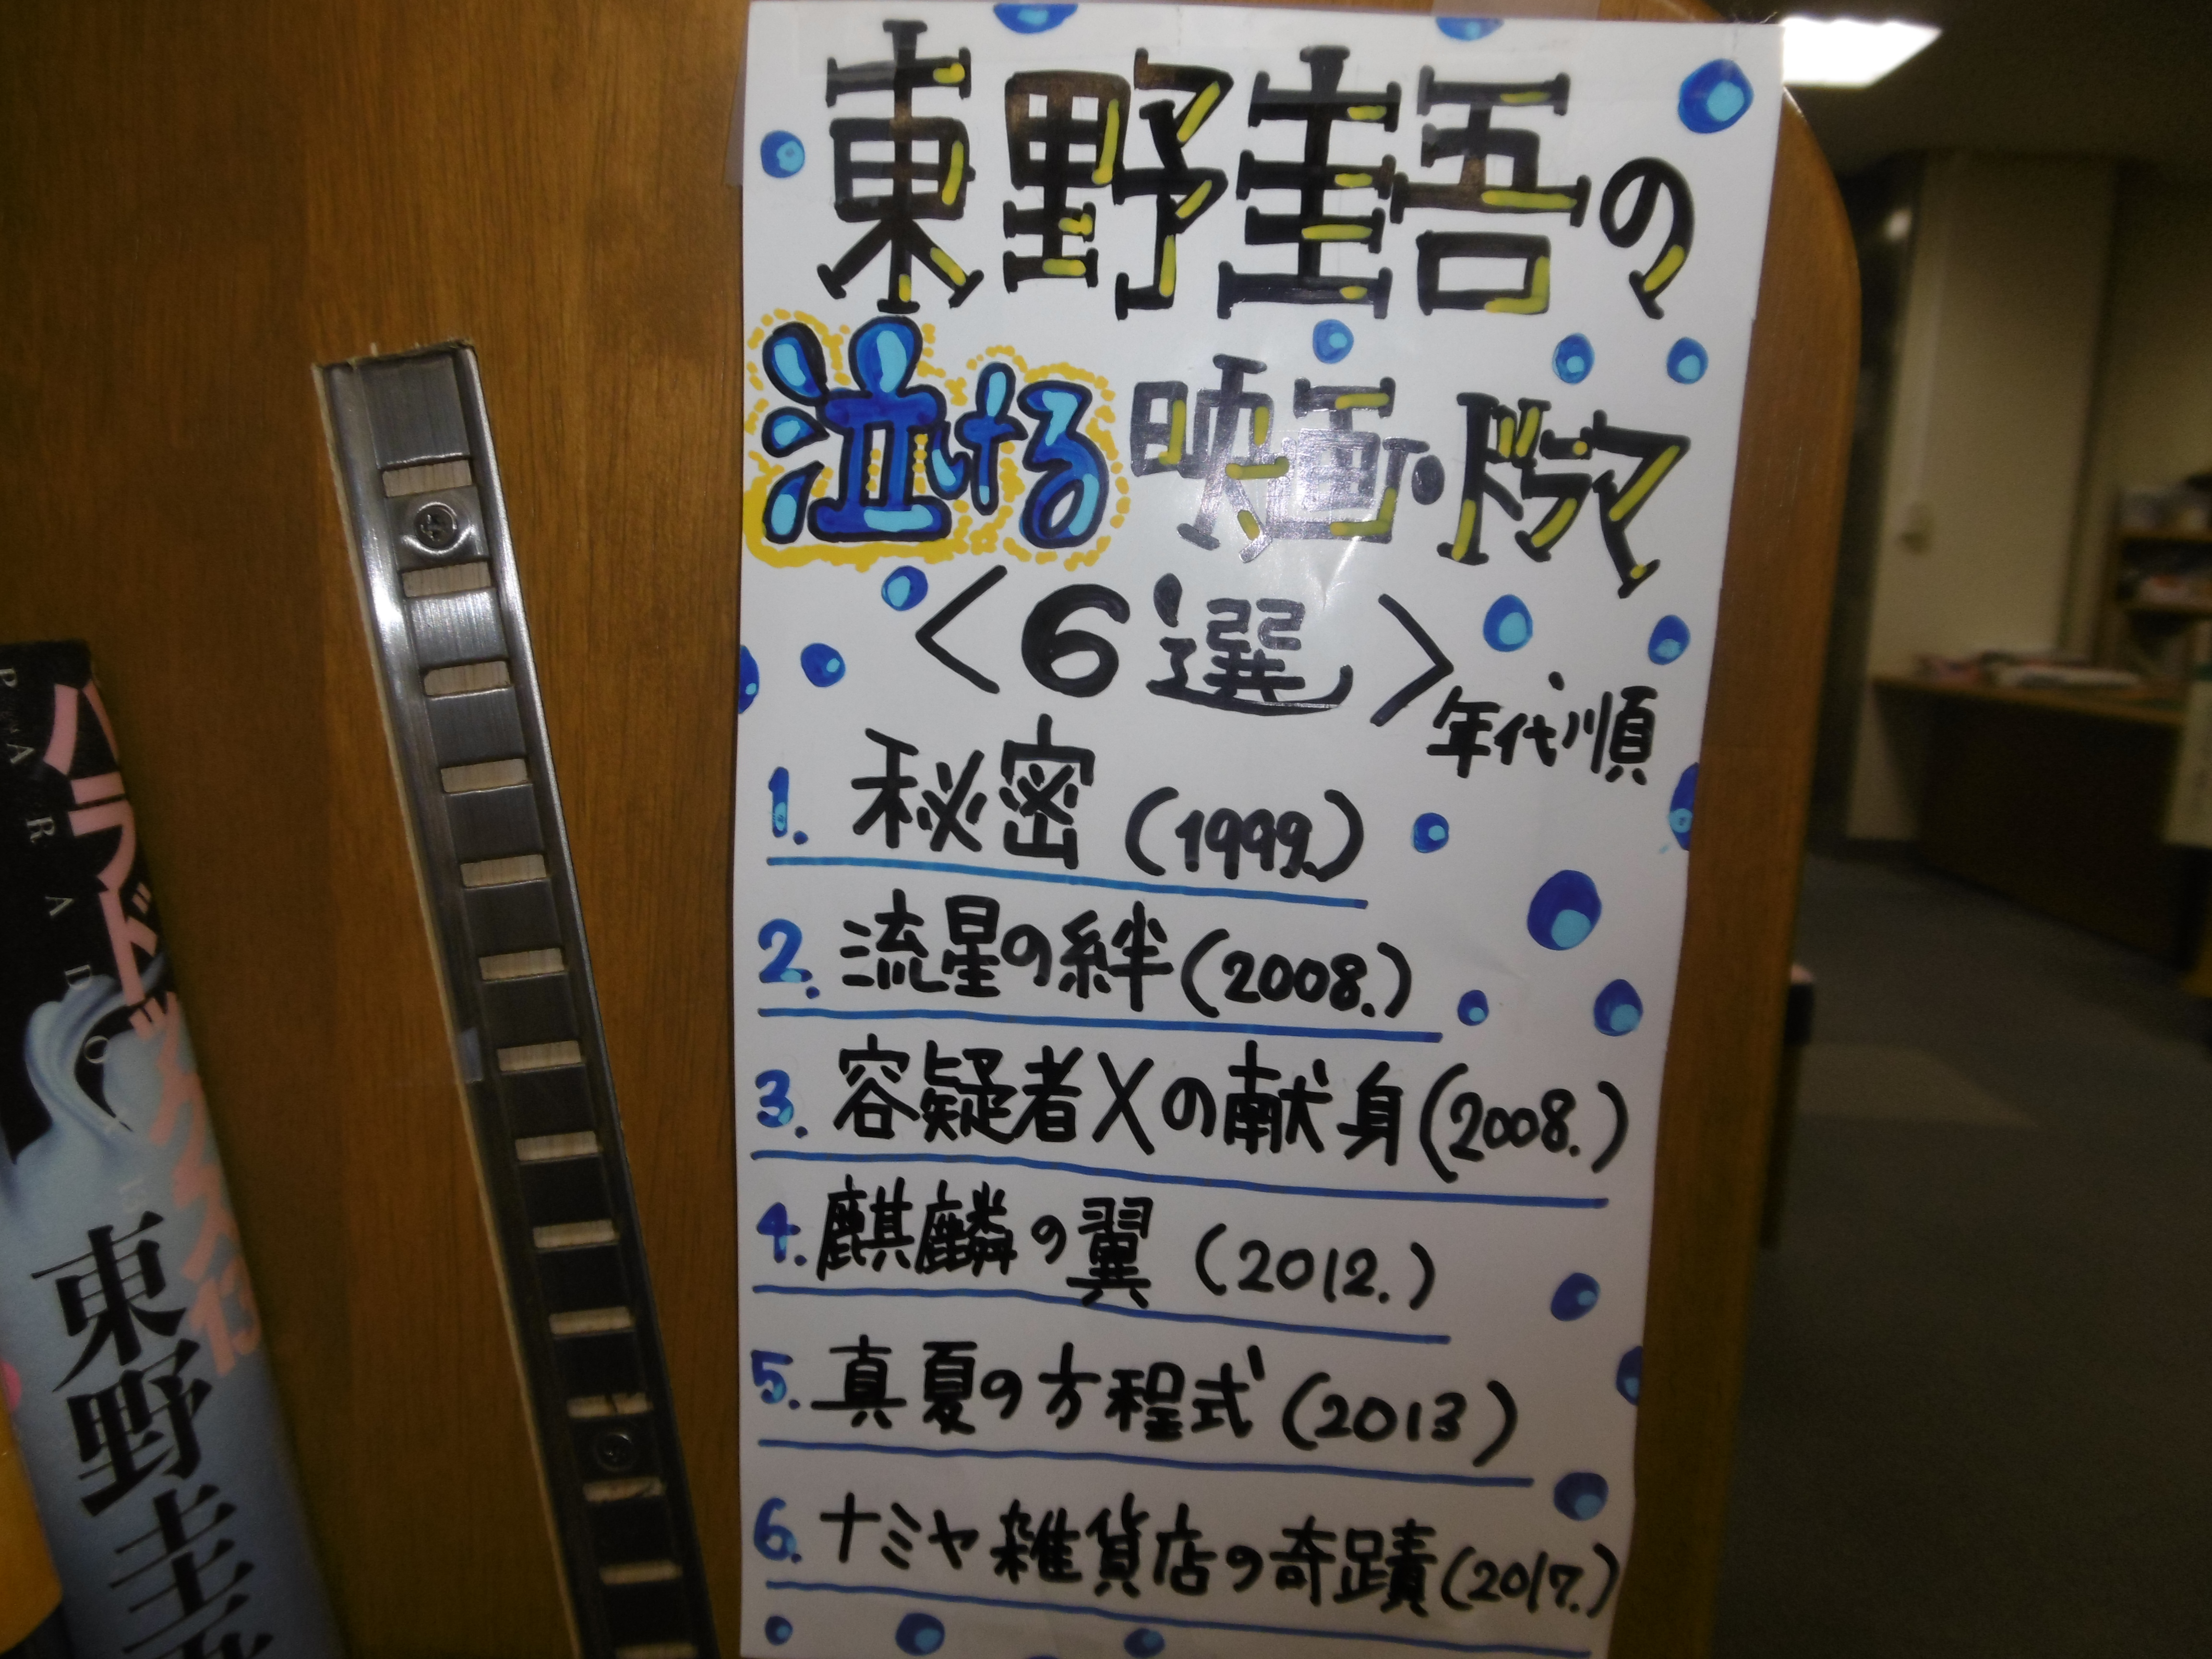 東野圭吾の
泣ける映画・ドラマ
<6選>
年代順
1. 秘密(1999.)
2. 流星の絆(2008.)
3. 容疑者Xの献身(2008.)
4. 麒麟の翼(2012.)
5. 真夏の方程式(2013)
6. ナミヤ雑貨店の奇蹟(2017.)
パラドックス13
PARADO
東野圭吾